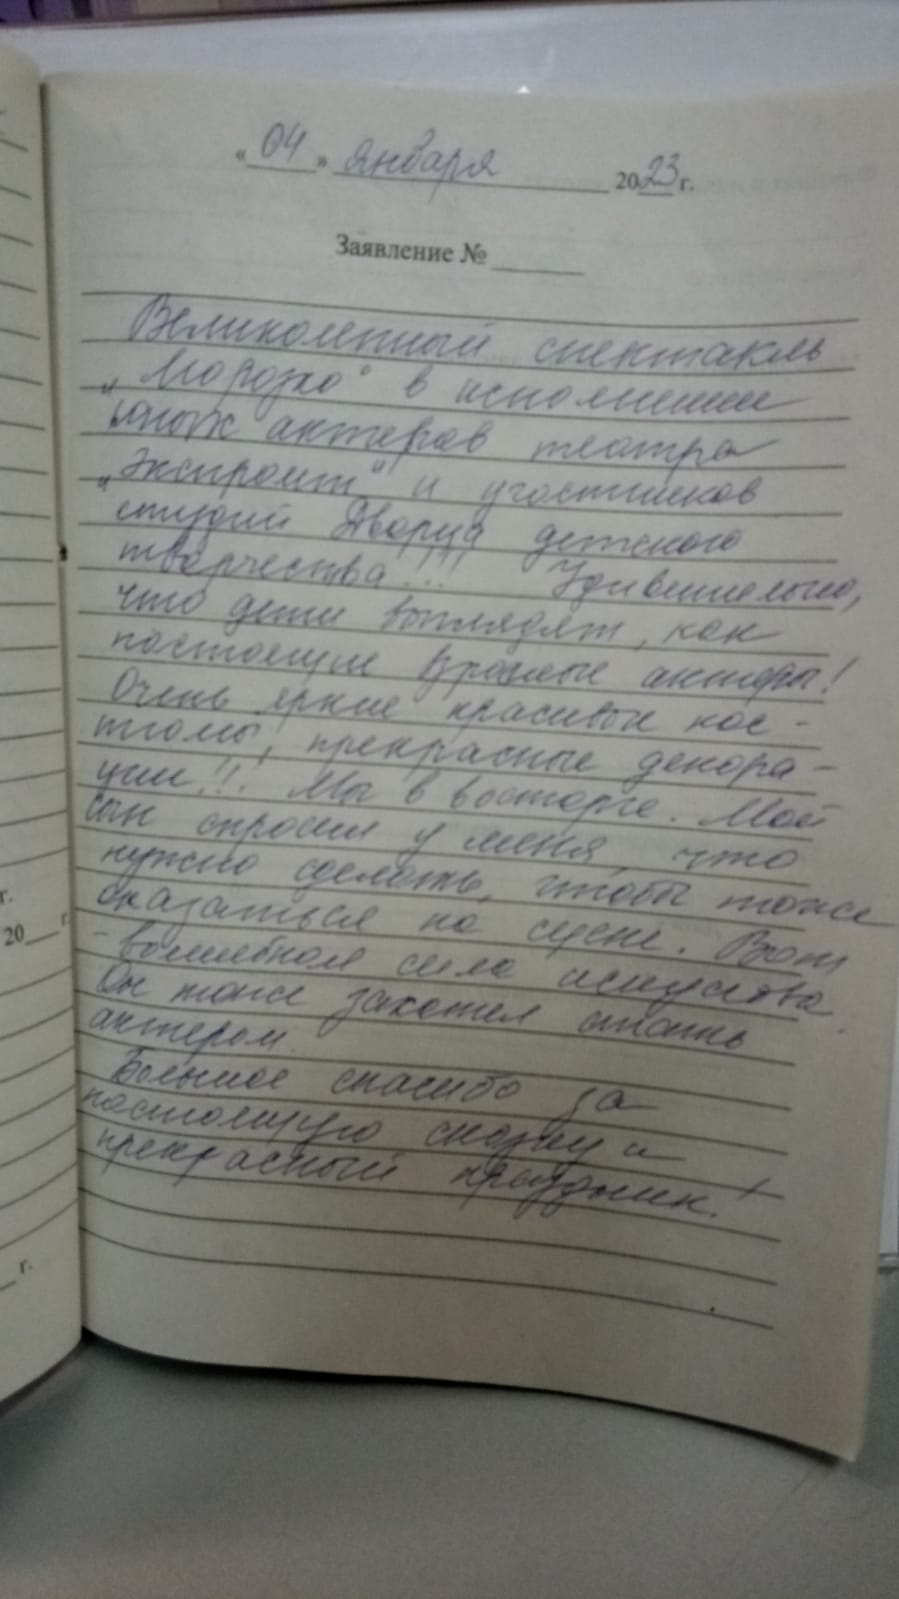 « 04 » января 2023 г.
Заявление № ______
Великолепный спектакль
„Морозко" в исполнении
юных актеров театра
„Экспромт" и участников
студий Дворца детского
творчества!!! Удивительно,
что дети выглядят, как
настоящие взрослые актеры!
Очень яркие красивые кос-
тюмы, прекрасные декора-
ции!!! Мы в восторге. Мой
сын спросил у меня, что
нужно сделать, чтобы тоже
оказаться на сцене. Вот
- волшебная сила искусства.
Он тоже захотел стать
актером.
Большое спасибо за
настоящую сказку и
прекрасный праздник!
г.
20___ г.
___ г.